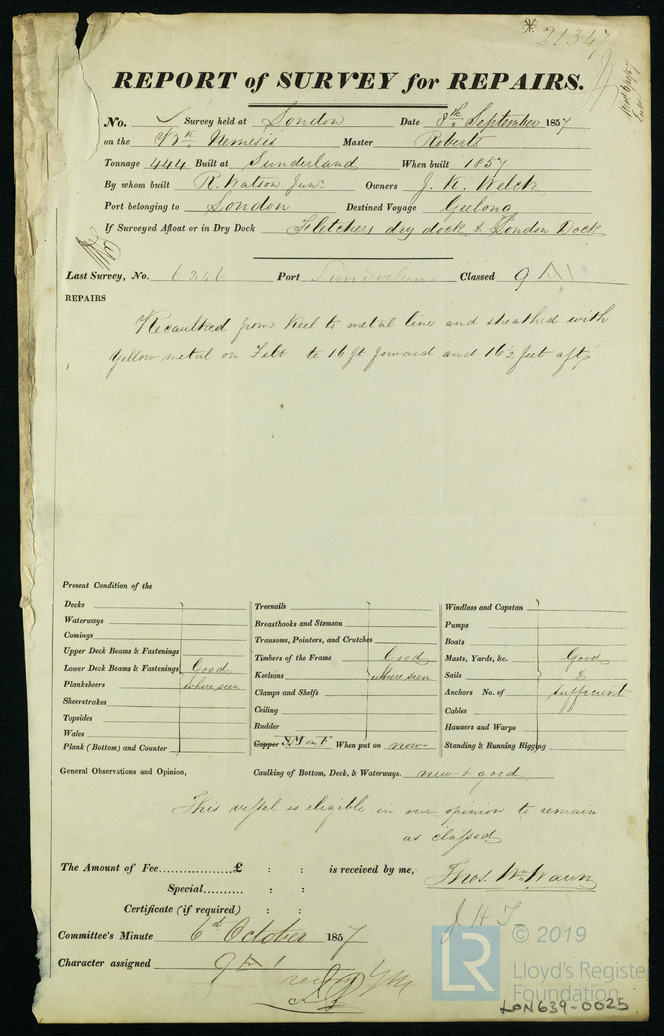 * 21347
REPORT of SURVEY for REPAIRS.
No. ✓ Survey held at London Date 8th September 1857
on the Nemesis Master Roberts
Tonnage 444 Built at Sunderland When built 1857
By whom built R. Watson Junr Owners J. K. Welch
Port belonging to London Destined Voyage Geelong
If Surveyed Afloat or in Dry Dock Fletchers dry dock & London Dock
Last Survey, No. 6246 Port Sunderland Classed 9 A1
REPAIRS
Recaulked from Keel to metal line and sheathed with
Yellow metal on Felt to 16 ft forward and 16½ feet aft
Present Condition of the
Decks
Waterways
Comings
Upper Deck Beams & Fastenings
Lower Deck Beams & Fastenings Good
Planksheers where seen
Sheerstrakes
Topsides
Wales
Plank (Bottom) and Counter
Treenails
Breasthooks and Stemson
Transoms, Pointers, and Crutches
Timbers of the Frame Good
Keelsons where seen
Clamps and Shelfs
Ceiling
Rudder
Copper YM on F When put on new
Windlass and Capstan
Pumps
Boats
Masts, Yards, &c. Good
Sails &
Anchors No. of sufficient
Cables
Hawsers and Warps
Standing & Running Rigging
General Observations and Opinion, Caulking of Bottom, Deck, & Waterways. new & good
This vessel is eligible in our opinion to remain
as classed
The Amount of Fee................£ : : is received by me, Thos. Wm Wawn
Special.......... : :
Certificate (if required) : : J H T
Committee's Minute 6th October 1857
Character assigned 9 A 1
LR © 2019
Lloyd's Register
Foundation
LON639-0025